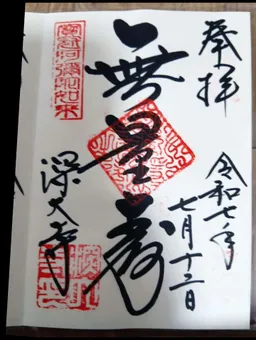 奉拝
令和七年
七月十二日
無量壽
深大寺